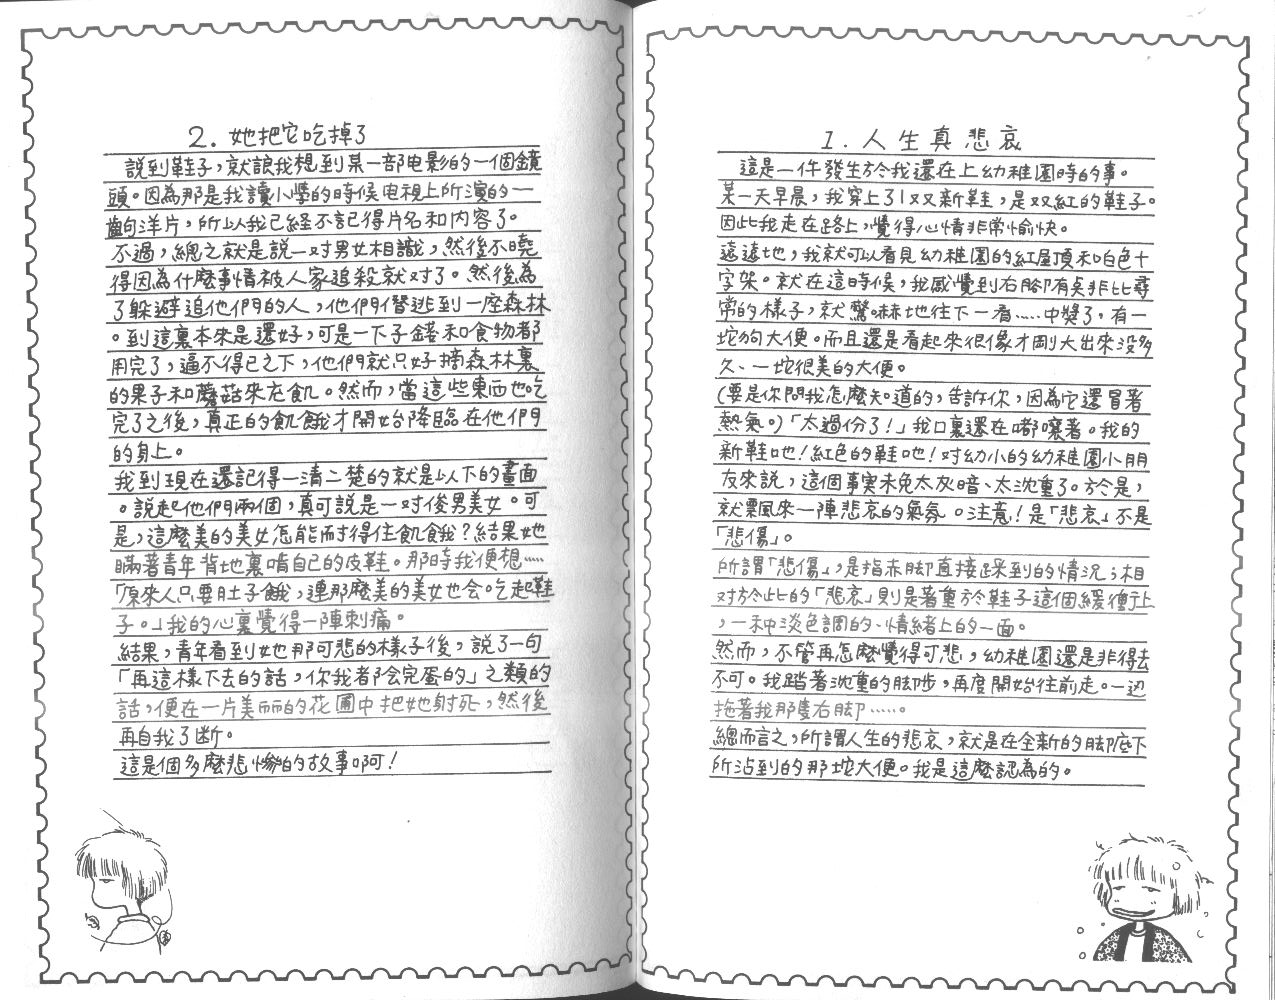 1. 人生真悲哀
這是一件發生於我還在上幼稚園時的事。
某一天早晨，我穿上了一双新鞋，是双紅的鞋子。
因此我走在路上，覺得心情非常愉快。
遠遠地，我就可以看見幼稚園的紅屋頂和白色十
字架。就在這時候，我感覺到右腳有点非比尋
常的樣子，就驚嚇地往下一看……中獎了，有一
坨狗大便。而且還是看起來很像才剛大出來沒多
久、一坨很美的大便。
(要是你問我怎麼知道的，告訴你，因為它還冒著
熱氣。)「太過份了！」我口裏還在嘟嚷著。我的
新鞋吔！紅色的鞋吔！对幼小的幼稚園小朋
友來說，這個事実未免太灰暗、太沈重了。於是，
就飄來一陣悲哀的氣氛。注意！是「悲哀」不是
「悲傷」。
所謂「悲傷」，是指赤脚直接踩到的情況；相
对於此的「悲哀」則是著重於鞋子這個緩衝上
，一种淡色調的、情緒上的一面。
然而，不管再怎麼覺得可悲，幼稚園還是非得去
不可。我踏著沈重的脚步，再度開始往前走。一边
拖著我那隻右脚……。
總而言之，所謂人生的悲哀，就是在全新的脚底下
所沾到的那坨大便。我是這麼認為的。
2. 她把它吃掉了
説到鞋子，就讓我想到某一部电影的一個鏡
頭。因為那是我讀小學的時候电視上所演的一
齣洋片，所以我已經不記得片名和内容了。
不過，總之就是説一对男女相識，然後不曉
得因為什麼事情被人家追殺就对了。然後為
了躲避追他們的人，他們僭逃到一座森林
。到這裏本來是還好，可是一下子錢和食物都
用完了，逼不得已之下，他們就只好摘森林裏
的果子和蘑菇來充飢。然而，當這些東西也吃
完了之後，真正的飢餓才開始降臨在他們
的身上。
我到現在還記得一清二楚的就是以下的畫面
。説起他們兩個，真可説是一对俊男美女。可
是，這麼美的美女怎能耐得住飢餓？結果她
瞞著青年背地裏啃自己的皮鞋。那時我便想……
「原來人只要肚子餓，連那麼美的美女也会吃起鞋
子。」我的心裏覺得一陣刺痛。
結果，青年看到她那可悲的樣子後，説了一句
「再這樣下去的話，你我都会完蛋的」之類的
話，便在一片美丽的花圃中把她射死，然後
再自我了断。
這是個多麼悲慘的故事啊！